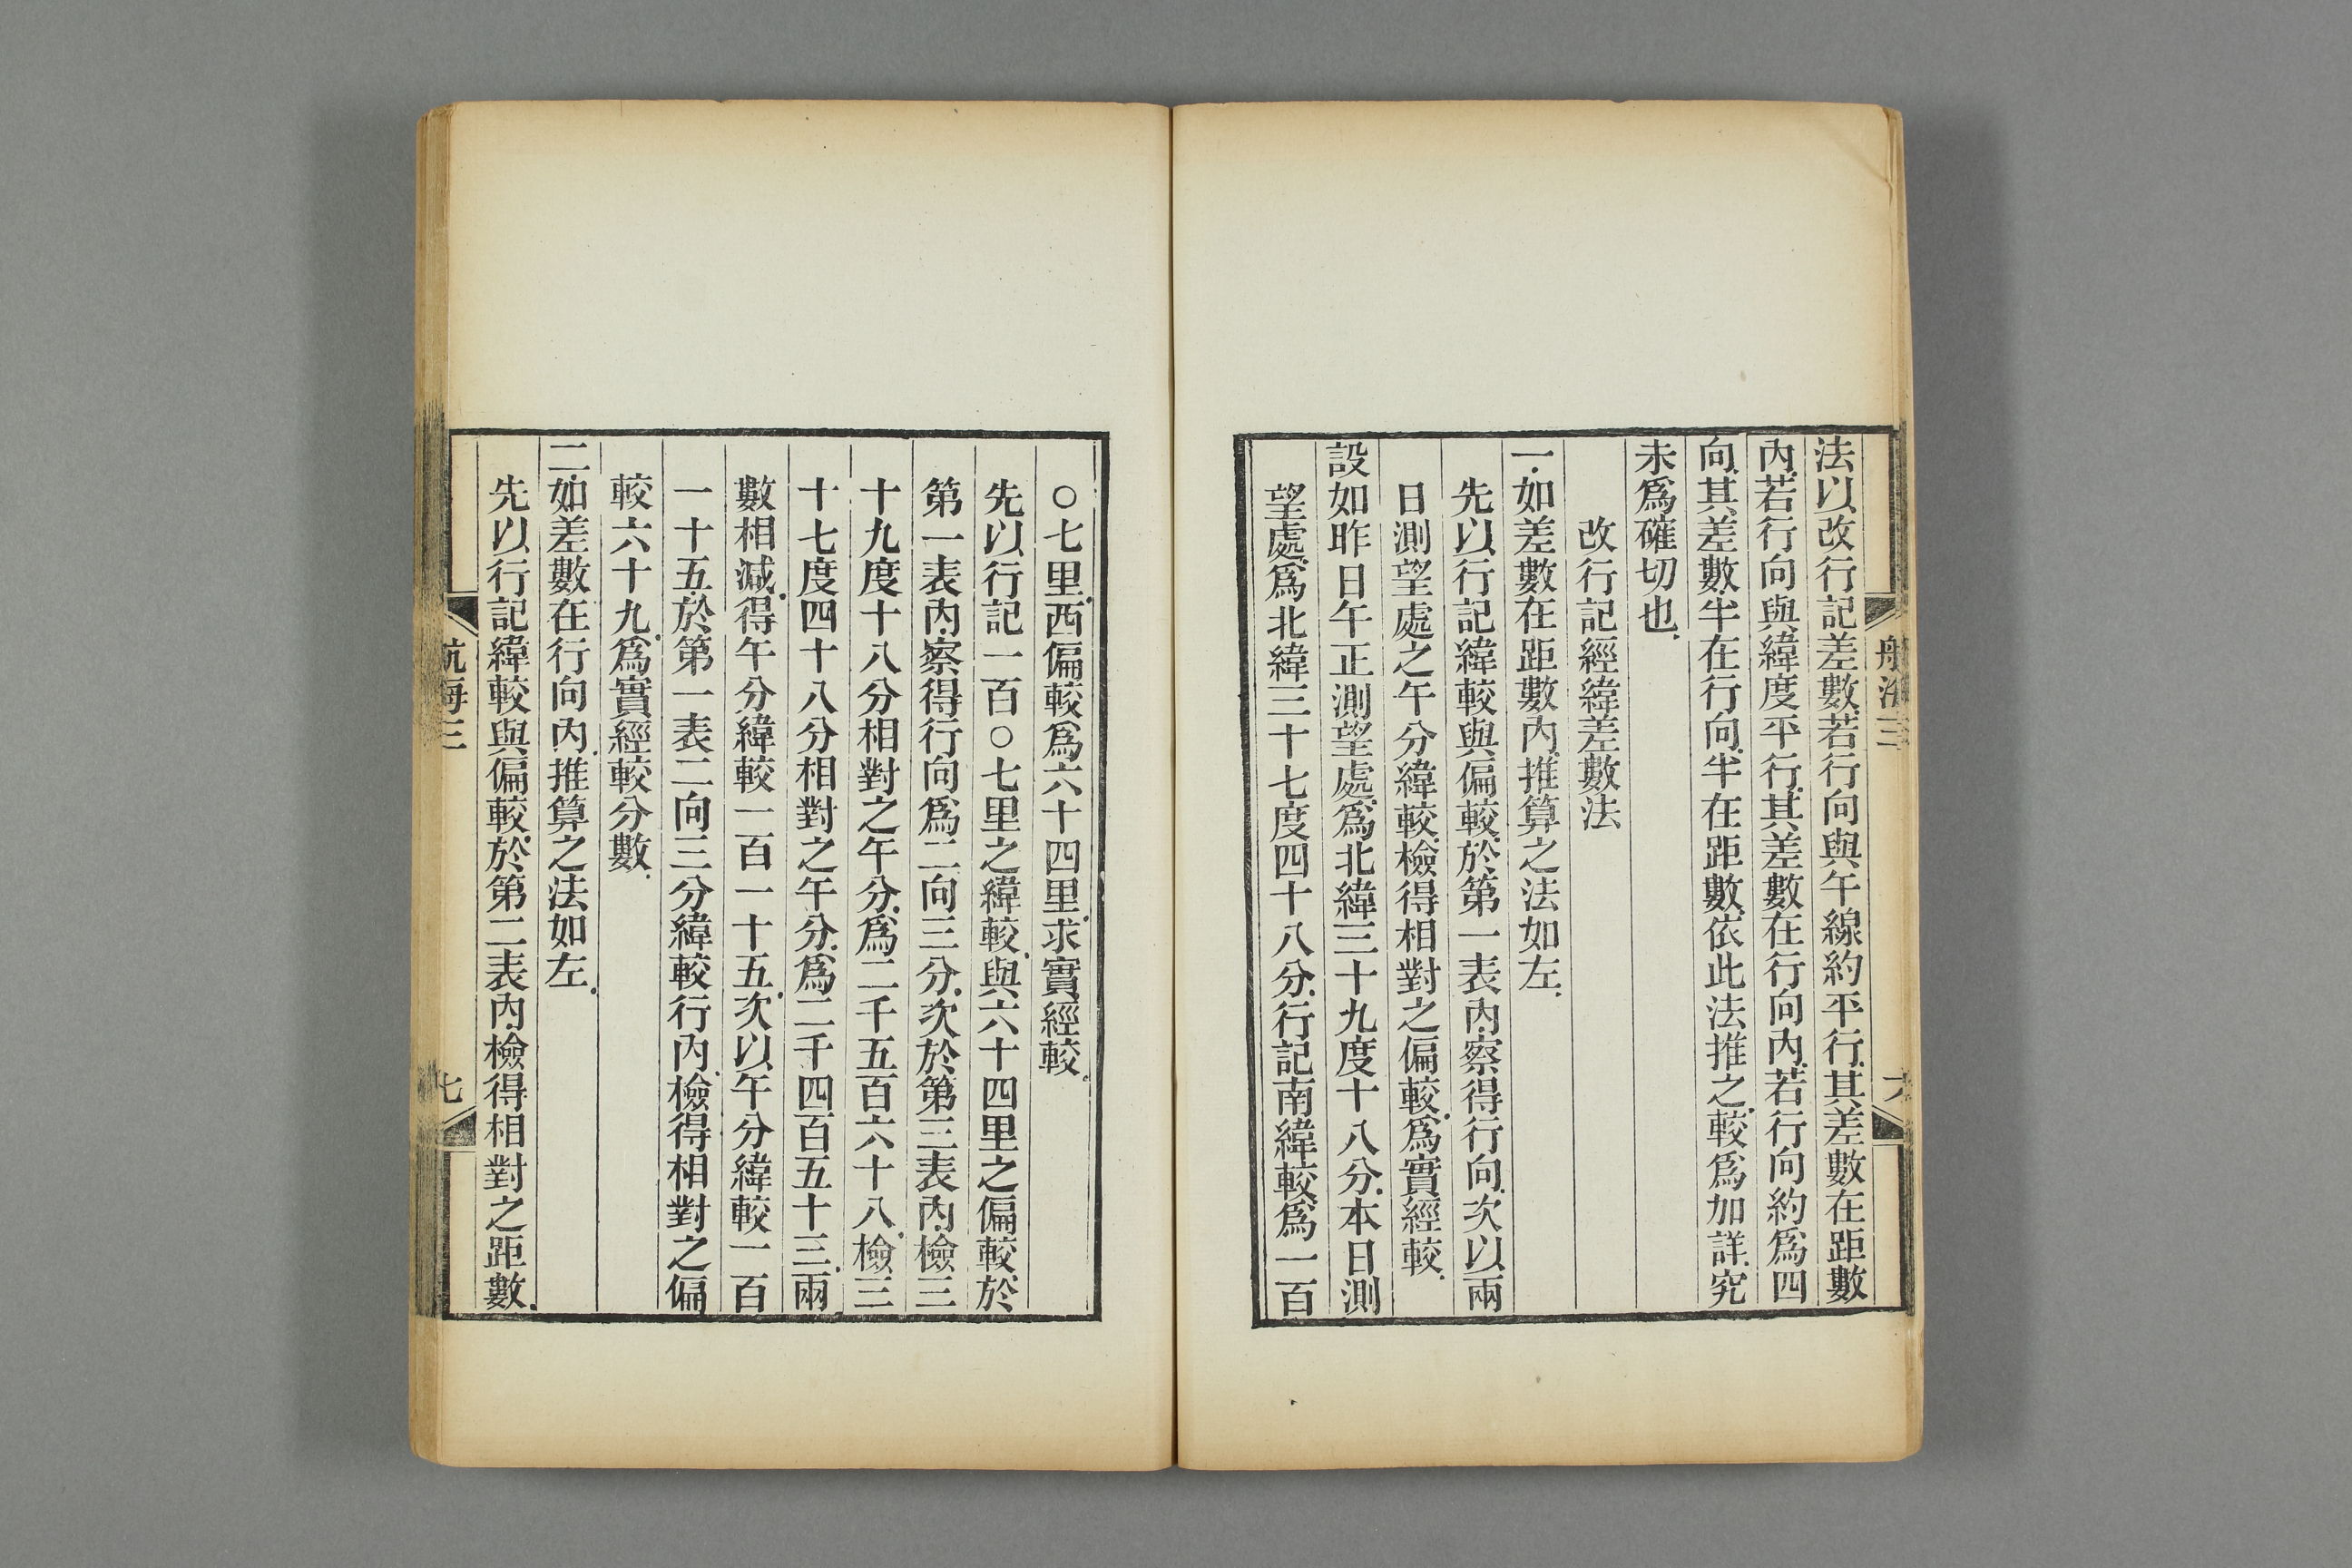 法以改行記差數若行向與午線約平行其差數在距數
內若行向與緯度平行其差數在行向內若行向約爲四
向其差數半在行向半在距數依此法推之較爲加詳究
未爲確切也
改行記經緯差數法
一如差數在距數內推算之法如左
先以行記緯較與偏較於第一表內察得行向次以兩
日測望處之午分緯較檢得相對之偏較爲實經較
設如昨日午正測望處爲北緯三十九度十八分本日測
望處爲北緯三十七度四十八分行記南緯較爲一百
○七里西偏較爲六十四里求實經較
先以行記一百○七里之緯較與六十四里之偏較於
第一表內察得行向爲二向三分次於第三表內檢三
十九度十八分相對之午分爲二千五百六十八檢三
十七度四十八分相對之午分爲二千四百五十三兩
數相減得午分緯較一百一十五次以午分緯較一百
一十五於第一表二向三分緯較行內檢得相對之偏
較六十九爲實經較分數
二如差數在行向內推算之法如左
先以行記緯較與偏較於第二表內檢得相對之距數
航海三
七